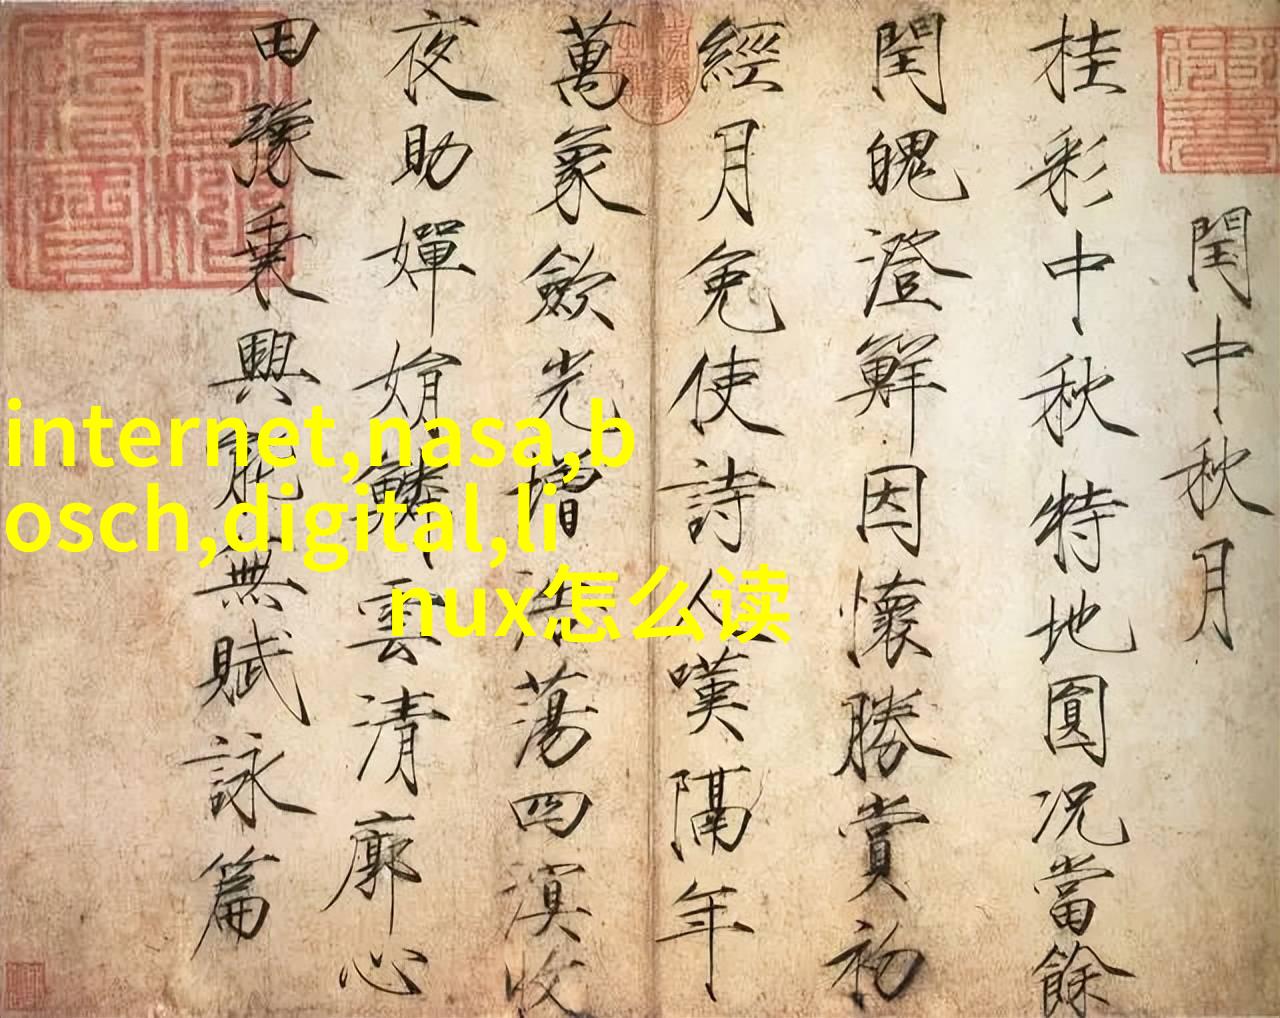 閏中秋月
桂彩中秋特地圓況當餘
閏魄澄鮮因懷勝賞初
經月免使詩人嘆隔年
萬象歛光增浩蕩四溟收
夜助嬋娟鱗雲清廓心
田豫乗興能無賦詠篇
internet,nasa,b
osch,digital,li
nux怎么读